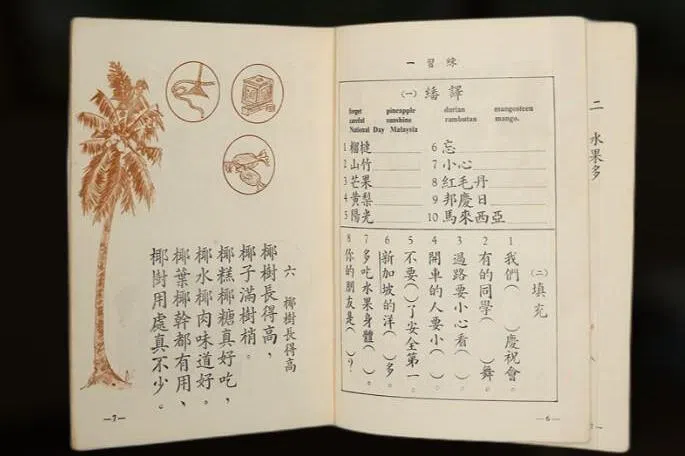 二 水果多
練習一
(一) 繙譯
forget pineapple durian mangosteen
careful sunshine rambutan mango.
National Day Malaysia
1 榴槤
2 山竹
3 芒果
4 黃梨
5 陽光
6 忘
7 小心
8 紅毛丹
9 邦慶日
10 馬來西亞
(二) 填充
1 我們( )慶祝會。
2 有的同學( )舞。
3 過路要小心看( )。
4 開車的人要小( )。
5 不要( )了安全第一。
6 新加坡的洋( )多。
7 多吃水果身體( )。
8 你的朋友是( )?
—6—
六 椰樹長得高
椰樹長得高，
椰子滿樹梢。
椰糕椰糖真好吃，
椰水椰肉味道好。
椰葉椰幹都有用、
椰樹用處真不少。
—7—